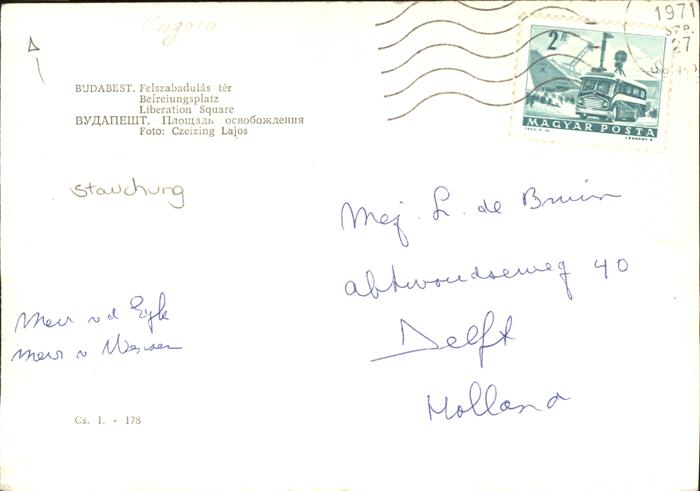 Ungarn
1971
27
2 Ft
MAGYAR POSTA
BUDABEST. Felszabadulás tér
Befreiungsplatz
Liberation Square
БУДАПЕШТ. Площадь освобождения
Foto: Czeizing Lajos
stauchung
Mej. L. de Bruin
abtwoudseweg 40
Delft
Holland
Mevr v d Eyk
Mevr v
Cs. I. - 178